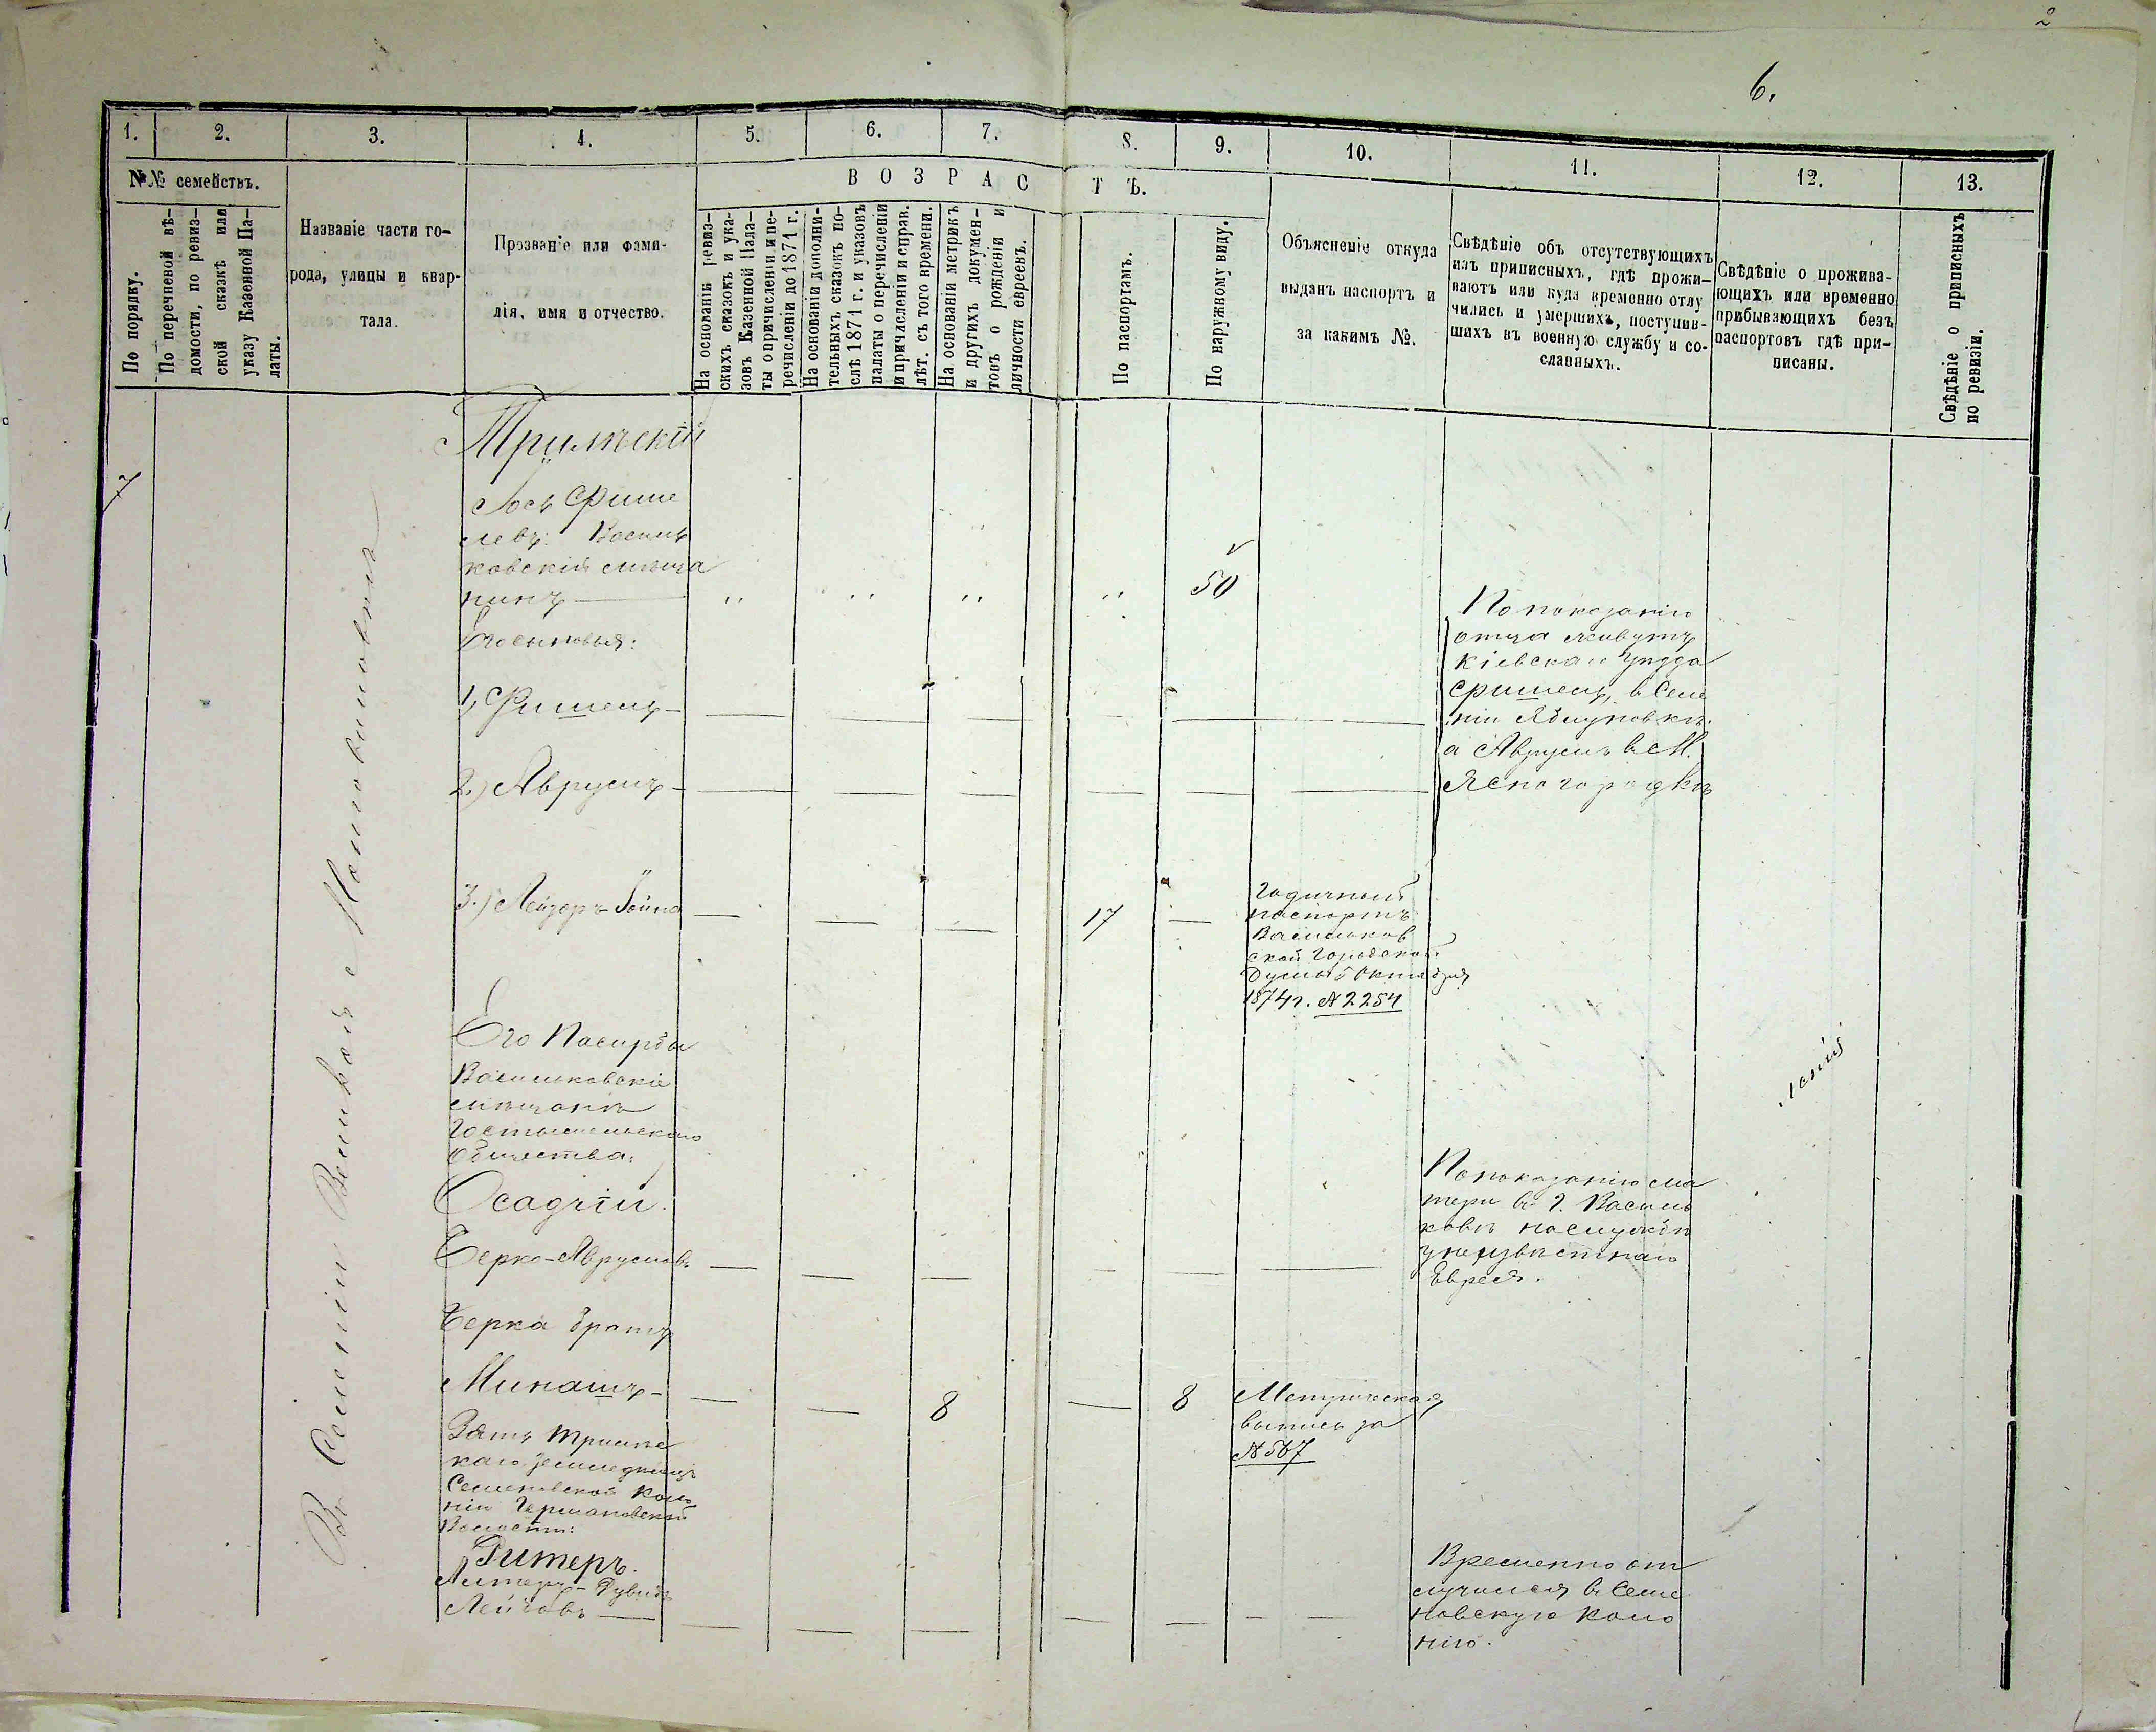 2
6.
1.
2.
3.
4.
5.
6.
7.
8.
9.
10.
11.
12.
13.
№№ семействъ.
ВОЗРАСТЪ.
По порядку.
По перечневой вѣ-
домости, по ревиз-
ской сказкѣ или
указу Казенной Па-
латы.
Названіе части го-
рода, улицы и квар-
тала.
Прозваніе или фами-
лія, имя и отчество.
На основаніи ревиз-
скихъ сказокъ и ука-
зовъ Казенной Пала-
ты о причисленіи и пе-
речисленіи до 1871 г.
На основаніи дополни-
тельныхъ сказокъ по-
слѣ 1871 г. и указовъ
палаты о перечисленіи
и причисленіи и справ.
лѣт. съ того времени.
На основаніи метрикъ
и другихъ докумен-
товъ о рожденіи и
личности евреевъ.
По паспортамъ.
По наружному виду.
Объясненіе откуда
выданъ паспортъ и
за какимъ №.
Свѣдѣніе объ отсутствующихъ
изъ приписныхъ, гдѣ прожи-
ваютъ или куда временно отлу
чились и умершихъ, поступив-
шихъ въ военную службу и со-
сланныхъ.
Свѣдѣніе о прожива-
ющихъ или временно
прибывающихъ безъ
паспортовъ гдѣ при-
писаны.
Свѣдѣніе о приписныхъ
по ревизіи.
7
Въ Селеніи
Трилѣскій
Іось Фише
левъ: Василь
ковскій мѣща
нинъ —
50
Его сыновья:
1, Фишель —
2.) Аврумъ —
По показанію
отца живутъ
Кіевскаго Уѣзда
Фишель, в Селе
ніи Яблуновкѣ
а Аврумъ в М.
Ясногородкѣ
3.) Лейзоръ-Іойна
17
Годичный
паспортъ
Васильков
ской Городской
Думы 5 Октября
1874г. № 2254
Его Пасирбы
Васильковскіе
мѣщане
Гостомельскаго
Общества:
Осадчій.
Берко-Аврумовъ
По показанію ма
тери въ г. Василь
ковѣ на службѣ
у неизвѣстнаго
Еврея.
Берка братъ
Минашъ —
8
8
Метрическая
выпись за
№ 567
Зять Трилѣс
каго земледѣлецъ
Семеновской Коло
ніи Германовской
Волости:
Ритеръ.
Дувидъ
Лейбовъ —
Временно от
лучился в Семе
новскую Коло
нію.